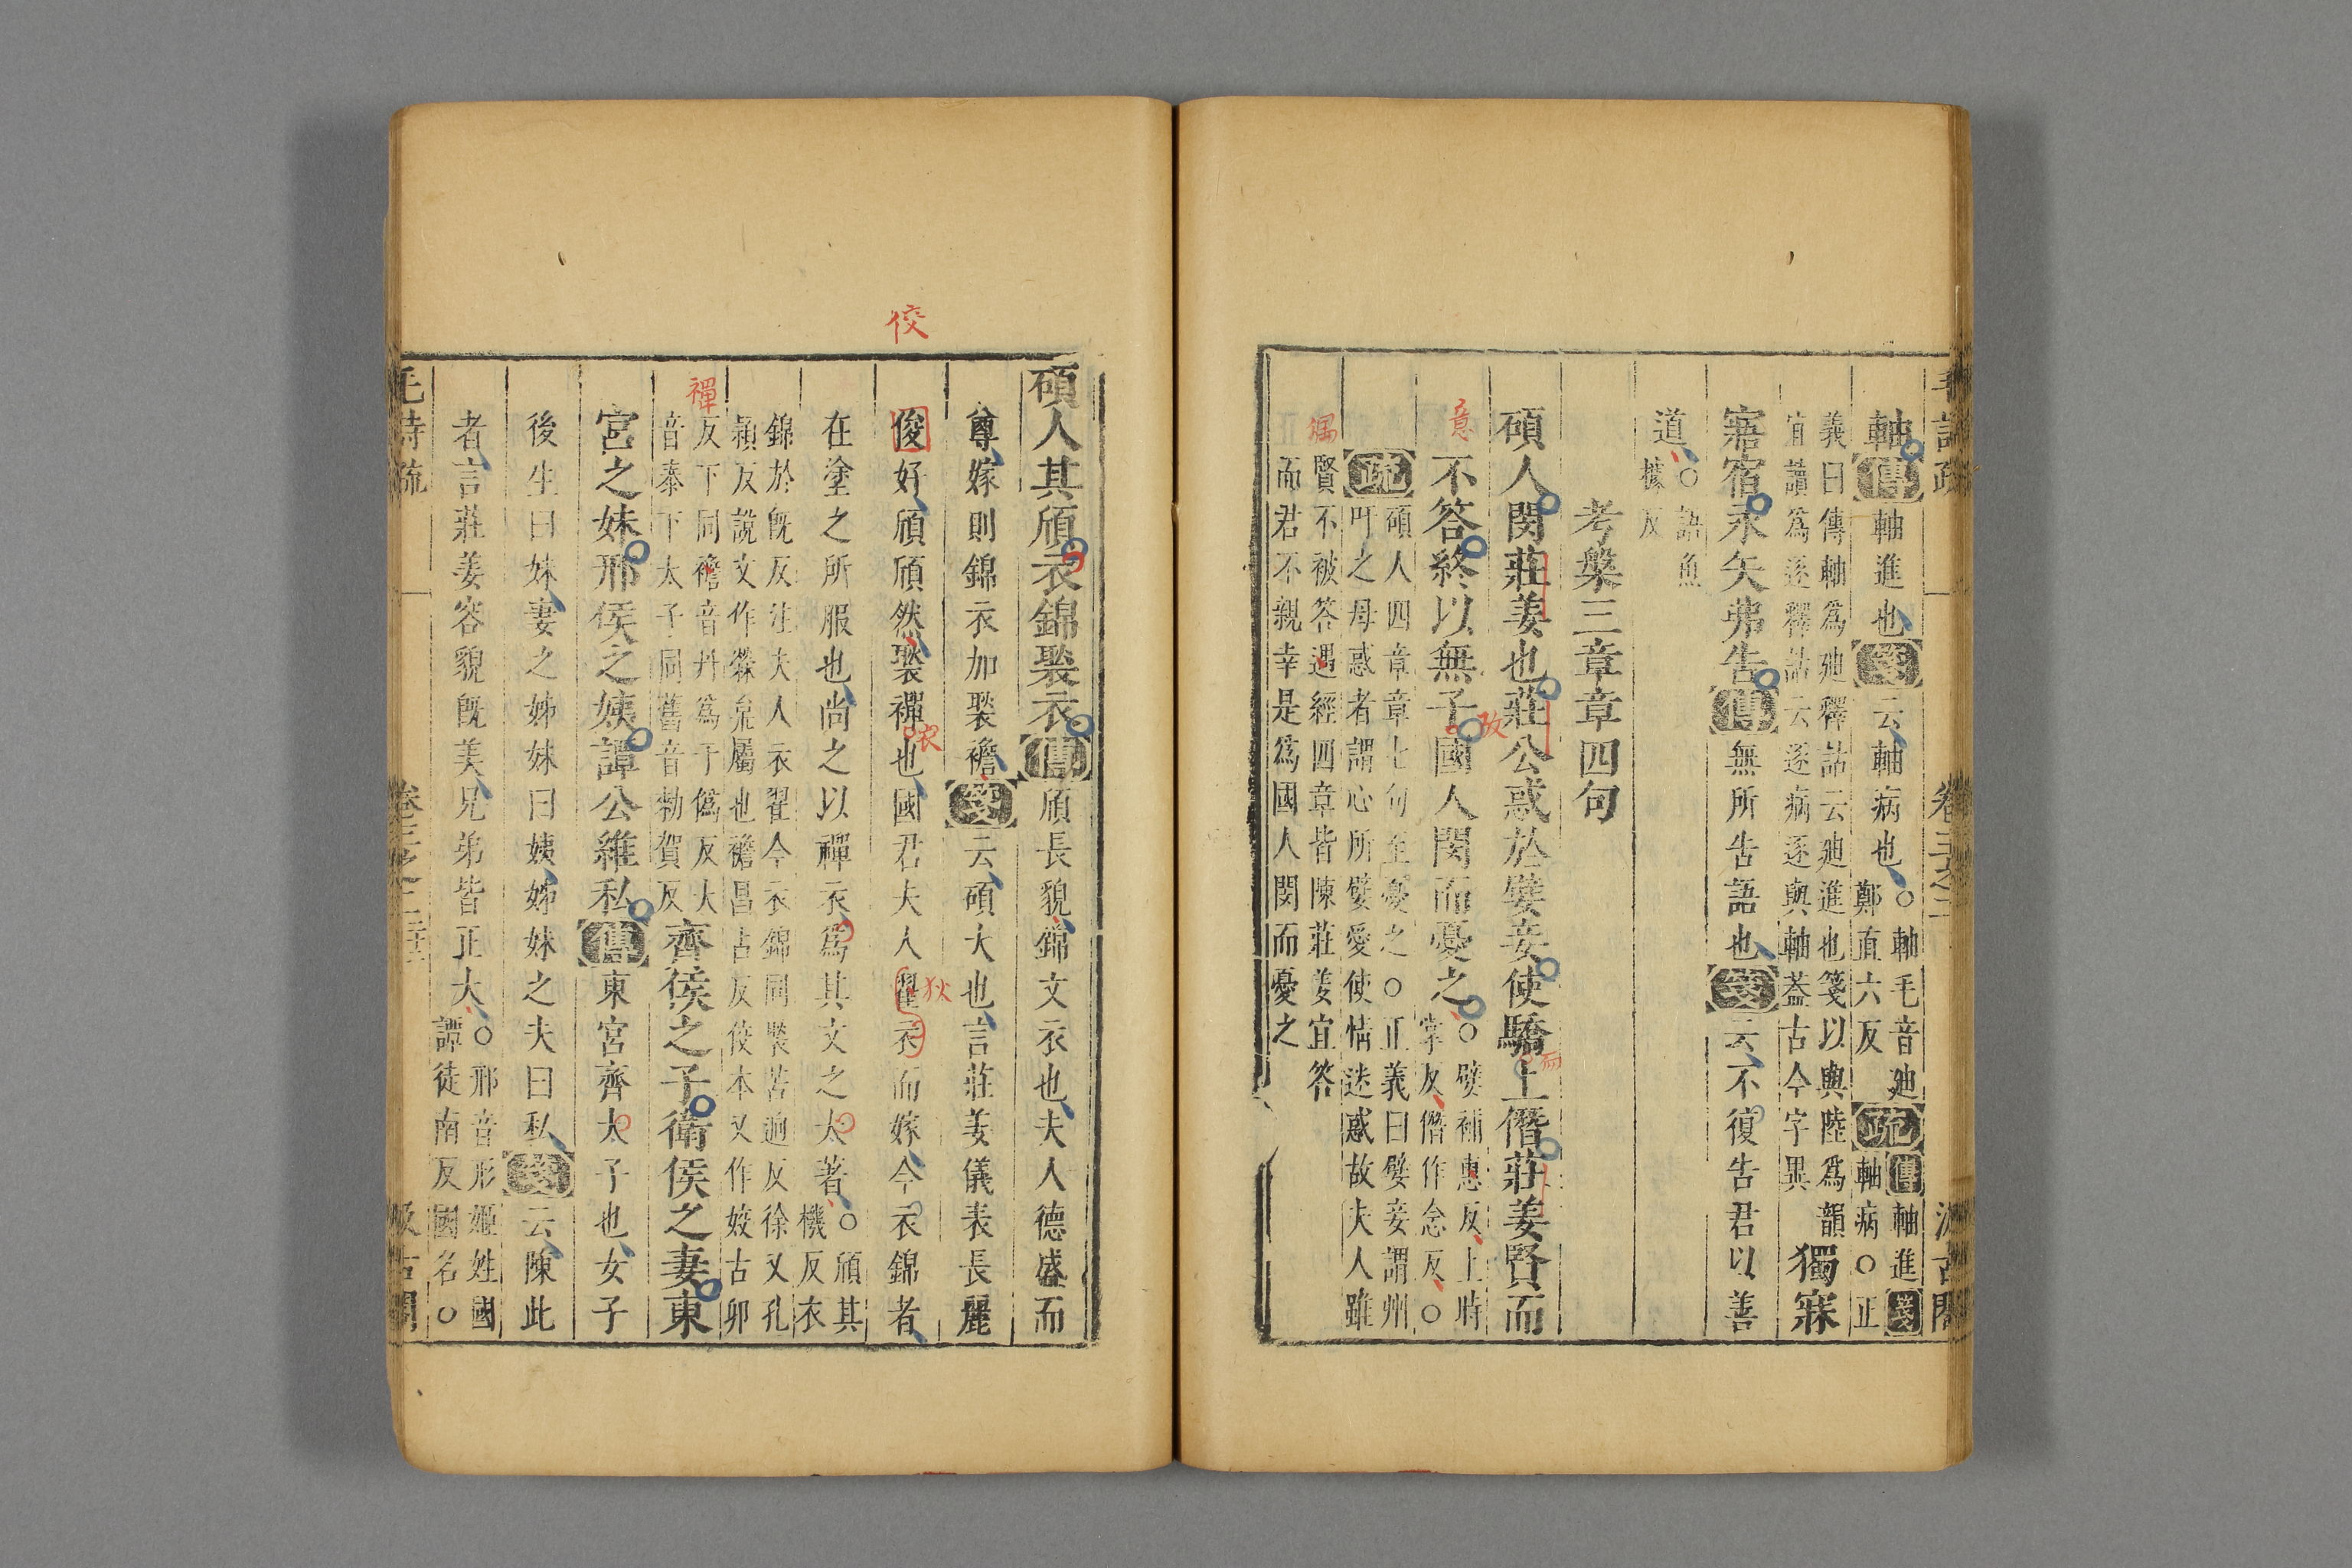 軸傳軸進也箋云軸病也○軸毛音廸
鄭直六反疏傳軸進箋
軸病○正
義曰傳軸為廸釋詁云廸進也箋以與陸為韻
宜讀為逐釋詁云逐病逐與軸蓋古今字異獨寐
寤宿永矢弗告傳無所告語也箋云不復告君以善
道○語魚
據反
考槃三章章四句
碩人閔莊姜也莊公惑於嬖妾使驕上僭莊姜賢而
不答終以無子國人閔而憂之○嬖補惠反上時
掌反僭作念反○
疏碩人四章章七句至憂之○正義曰嬖妾謂州
吁之母惑者謂心所嬖愛使情迷惑故夫人雖
賢不被答遇經四章皆陳莊姜宜答
而君不親幸是為國人閔而憂之
意
孜
而
碩人其頎衣錦褧衣傳頎長貌錦文衣也夫人德盛而
尊嫁則錦衣加褧襜箋云碩大也言莊姜儀表長麗
俊好頎頎然褧襌也國君夫人翟衣而嫁今衣錦者
在塗之所服也尚之以襌衣為其文之大著○頎其
機反衣
錦於既反注夫人衣翟今衣錦同褧苦逈反徐又孔
穎反說文作檾枲屬也襜昌占反佼本又作姣古卯
反下同襜音丹為于偽反大
音泰下大子同舊音勑賀反齊侯之子衛侯之妻東
宮之妹邢侯之姨譚公維私傳東宮齊大子也女子
後生曰妹妻之姊妹曰姨姊妹之夫曰私箋云陳此
者言莊姜容貌既美兄弟皆正大○邢音形姬姓國
譚徒南反國名○
毛詩疏
佼
襌
衣
狄